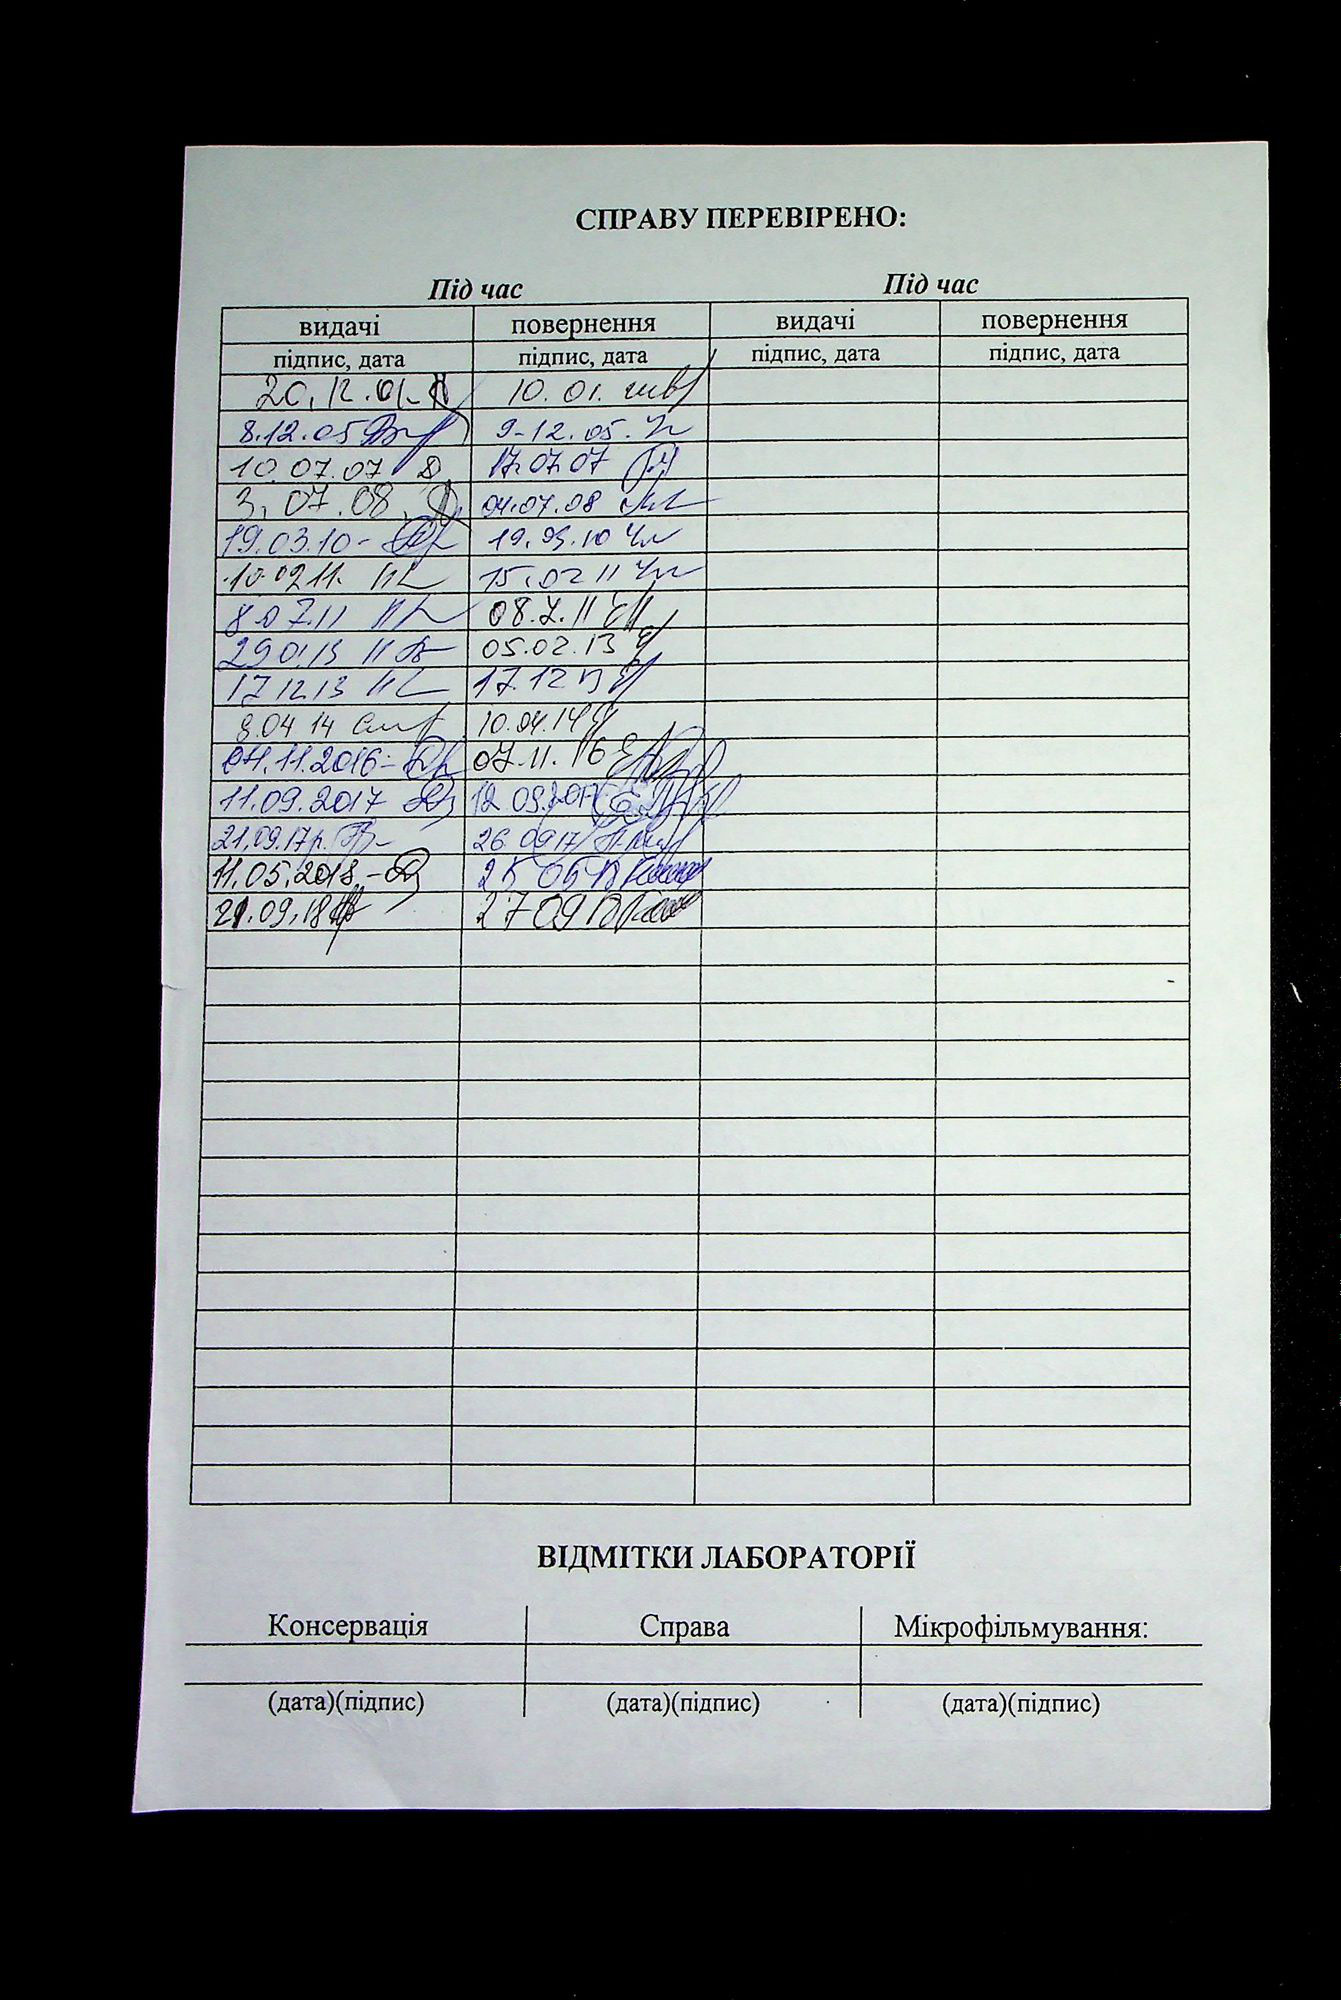 СПРАВУ ПЕРЕВІРЕНО:
Під час Під час
видачі повернення видачі повернення
підпис, дата підпис, дата підпис, дата підпис, дата
20.12.01- 10.01.
8.12.05 9-12.05.
10.07.07 17.07.07
3.07.08. 04.07.08
19.03.10- 19.03.10
10.02 11. 15.02 11
8.07.11 08.7.11
29.01.13 05.02.13
17 12 13 17.12 13
9.04 14 10.04.14
04.11.2016- 07.11.16
11.09.2017 12.09.2017
21.09.17р. 26.09 17
11.05.2018- 25 05
21.09.18 27 09
ВІДМІТКИ ЛАБОРАТОРІЇ
Консервація Справа Мікрофільмування:
(дата)(підпис) (дата)(підпис) (дата)(підпис)